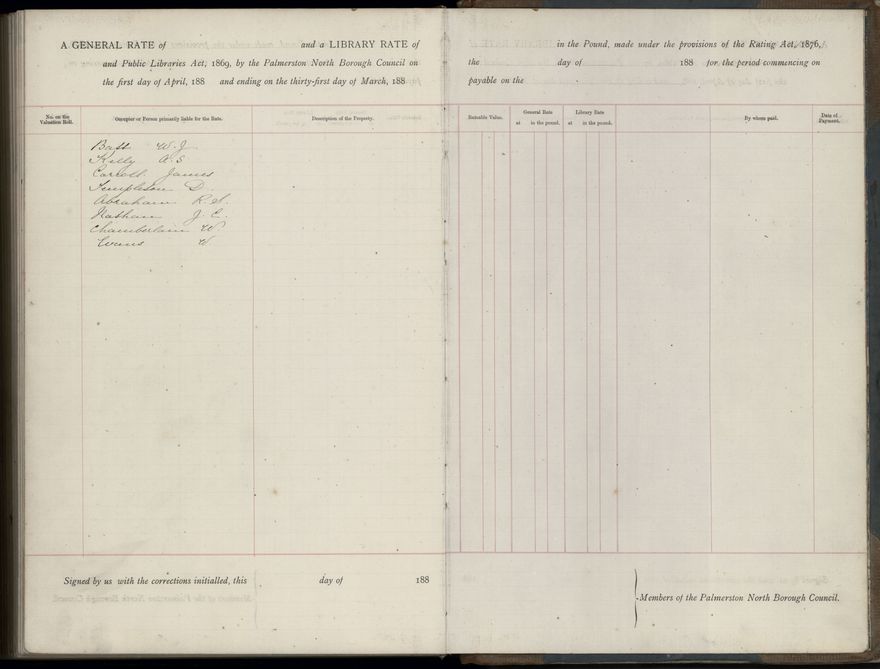 A GENERAL RATE of and a LIBRARY RATE of in the Pound, made under the provisions of the Rating Act, 1876,
and Public Libraries Act, 1869, by the Palmerston North Borough Council on the day of 188 for the period commencing on
the first day of April, 188 and ending on the thirty-first day of March, 188 payable on the
No. on the Valuation Roll. Occupier or Person primarily liable for the Rate. Description of the Property. Rateable Value. General Rate at in the pound. Library Rate at in the pound. By whom paid. Date of Payment.
Batt W. J.
Kelly A. S.
Carroll James
Templeton D.
Abraham R. S.
Nathan J. E.
Chamberlain W
Evans W
Signed by us with the corrections initialled, this day of 188
Members of the Palmerston North Borough Council.